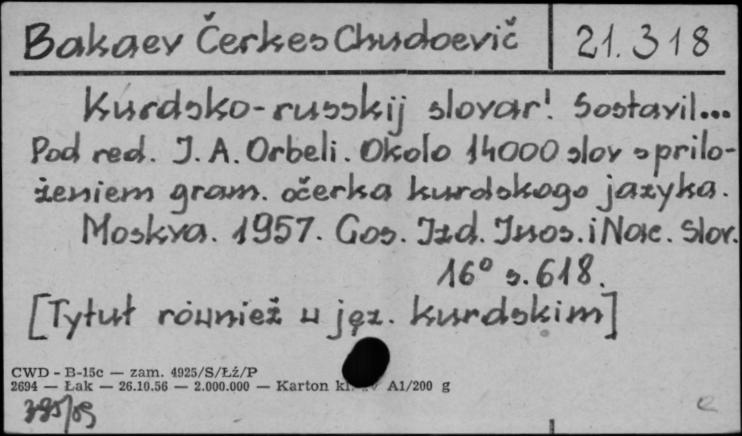 Bakaev Čerkes Chudoevič 21.318
Kurdsko-russkij slovar'. Sostavil...
Pod red. I. A. Orbeli. Okolo 14000 slov s prilo-
ženiem gram. očerka kurdskogo jazyka.
Moskva. 1957. Gos. Izd. Inos. i Nac. Slov.
16° s. 618.
[Tytuł również w jęz. kurdskim]
CWD - B-15c — zam. 4925/S/Łź/P
2694 — Łak — 26.10.56 — 2.000.000 — Karton kl. A1/200 g